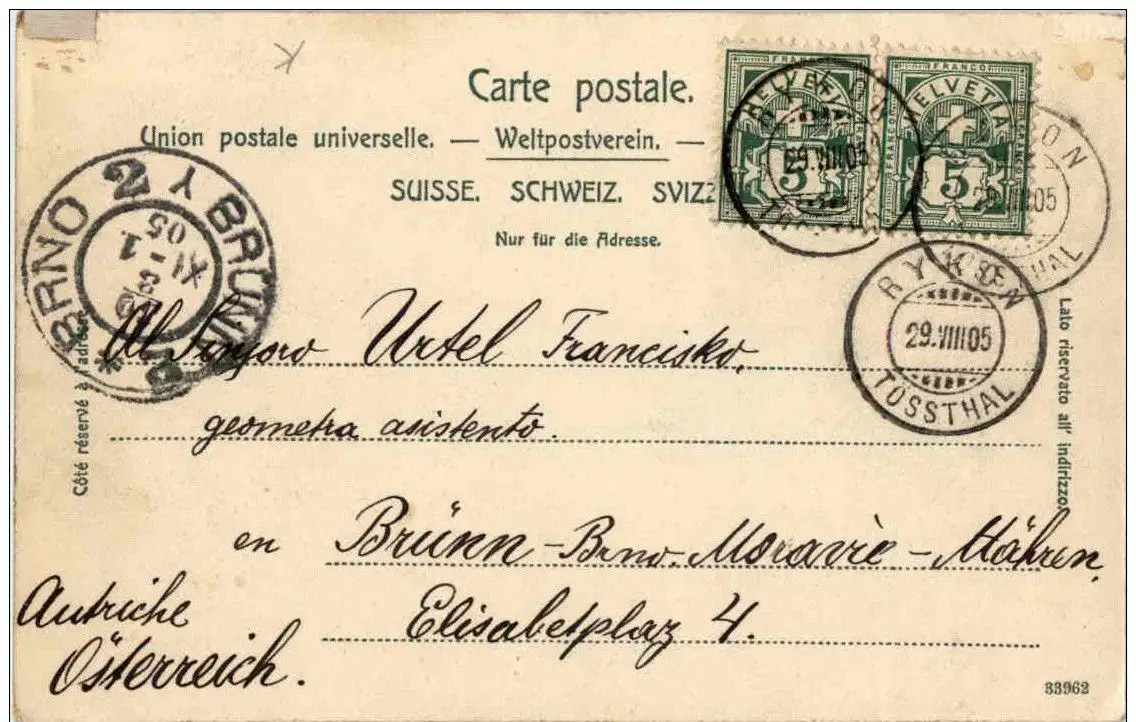 K
Carte postale.
Union postale universelle. — Weltpostverein. —
SUISSE. SCHWEIZ. SVIZZ
Nur für die Adresse.
FRANCO
HELVETIA
5
FRANCO
HELVETIA
5
29.VIII.05
29.VIII.05
RYKON
29.VIII.05
TÖSSTHAL
BRNO 2 BRÜNN
Côté réservé à l'adresse
Lato riservato all' indirizzo.
Al Sinjoro Urtel Francisko,
geometra asistento.
en Brünn - Brno. Moravie - Mähren,
Autriche Elisabetplaz 4.
Österreich.
33962